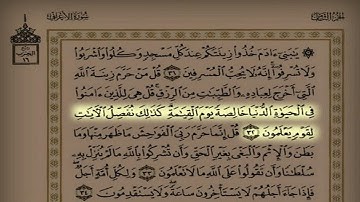 سورة الأعراف
الجزء الثامن
يَٰبَنِىٓ ءَادَمَ خُذُوا۟ زِينَتَكُمْ عِندَ كُلِّ مَسْجِدٍ وَكُلُوا۟ وَٱشْرَبُوا۟
وَلَا تُسْرِفُوٓا۟ إِنَّهُۥ لَا يُحِبُّ ٱلْمُسْرِفِينَ ٣١ قُلْ مَنْ حَرَّمَ زِينَةَ ٱللَّهِ
ٱلَّتِىٓ أَخْرَجَ لِعِبَادِهِۦ وَٱلطَّيِّبَٰتِ مِنَ ٱلرِّزْقِ قُلْ هِىَ لِلَّذِينَ ءَامَنُوا۟
فِى ٱلْحَيَوٰةِ ٱلدُّنْيَا خَالِصَةً يَوْمَ ٱلْقِيَٰمَةِ كَذَٰلِكَ نُفَصِّلُ ٱلْءَايَٰتِ
لِقَوْمٍ يَعْلَمُونَ ٣٢ قُلْ إِنَّمَا حَرَّمَ رَبِّىَ ٱلْفَوَٰحِشَ مَا ظَهَرَ مِنْهَا وَمَا
بَطَنَ وَٱلْإِثْمَ وَٱلْبَغْىَ بِغَيْرِ ٱلْحَقِّ وَأَن تُشْرِكُوا۟ بِٱللَّهِ مَا لَمْ يُنَزِّلْ بِهِۦ
سُلْطَٰنًا وَأَن تَقُولُوا۟ عَلَى ٱللَّهِ مَا لَا تَعْلَمُونَ ٣٣ وَلِكُلِّ أُمَّةٍ أَجَلٌ
فَإِذَا جَآءَ أَجَلُهُمْ لَا يَسْتَأْخِرُونَ سَاعَةً وَلَا يَسْتَقْدِمُونَ ٣٤